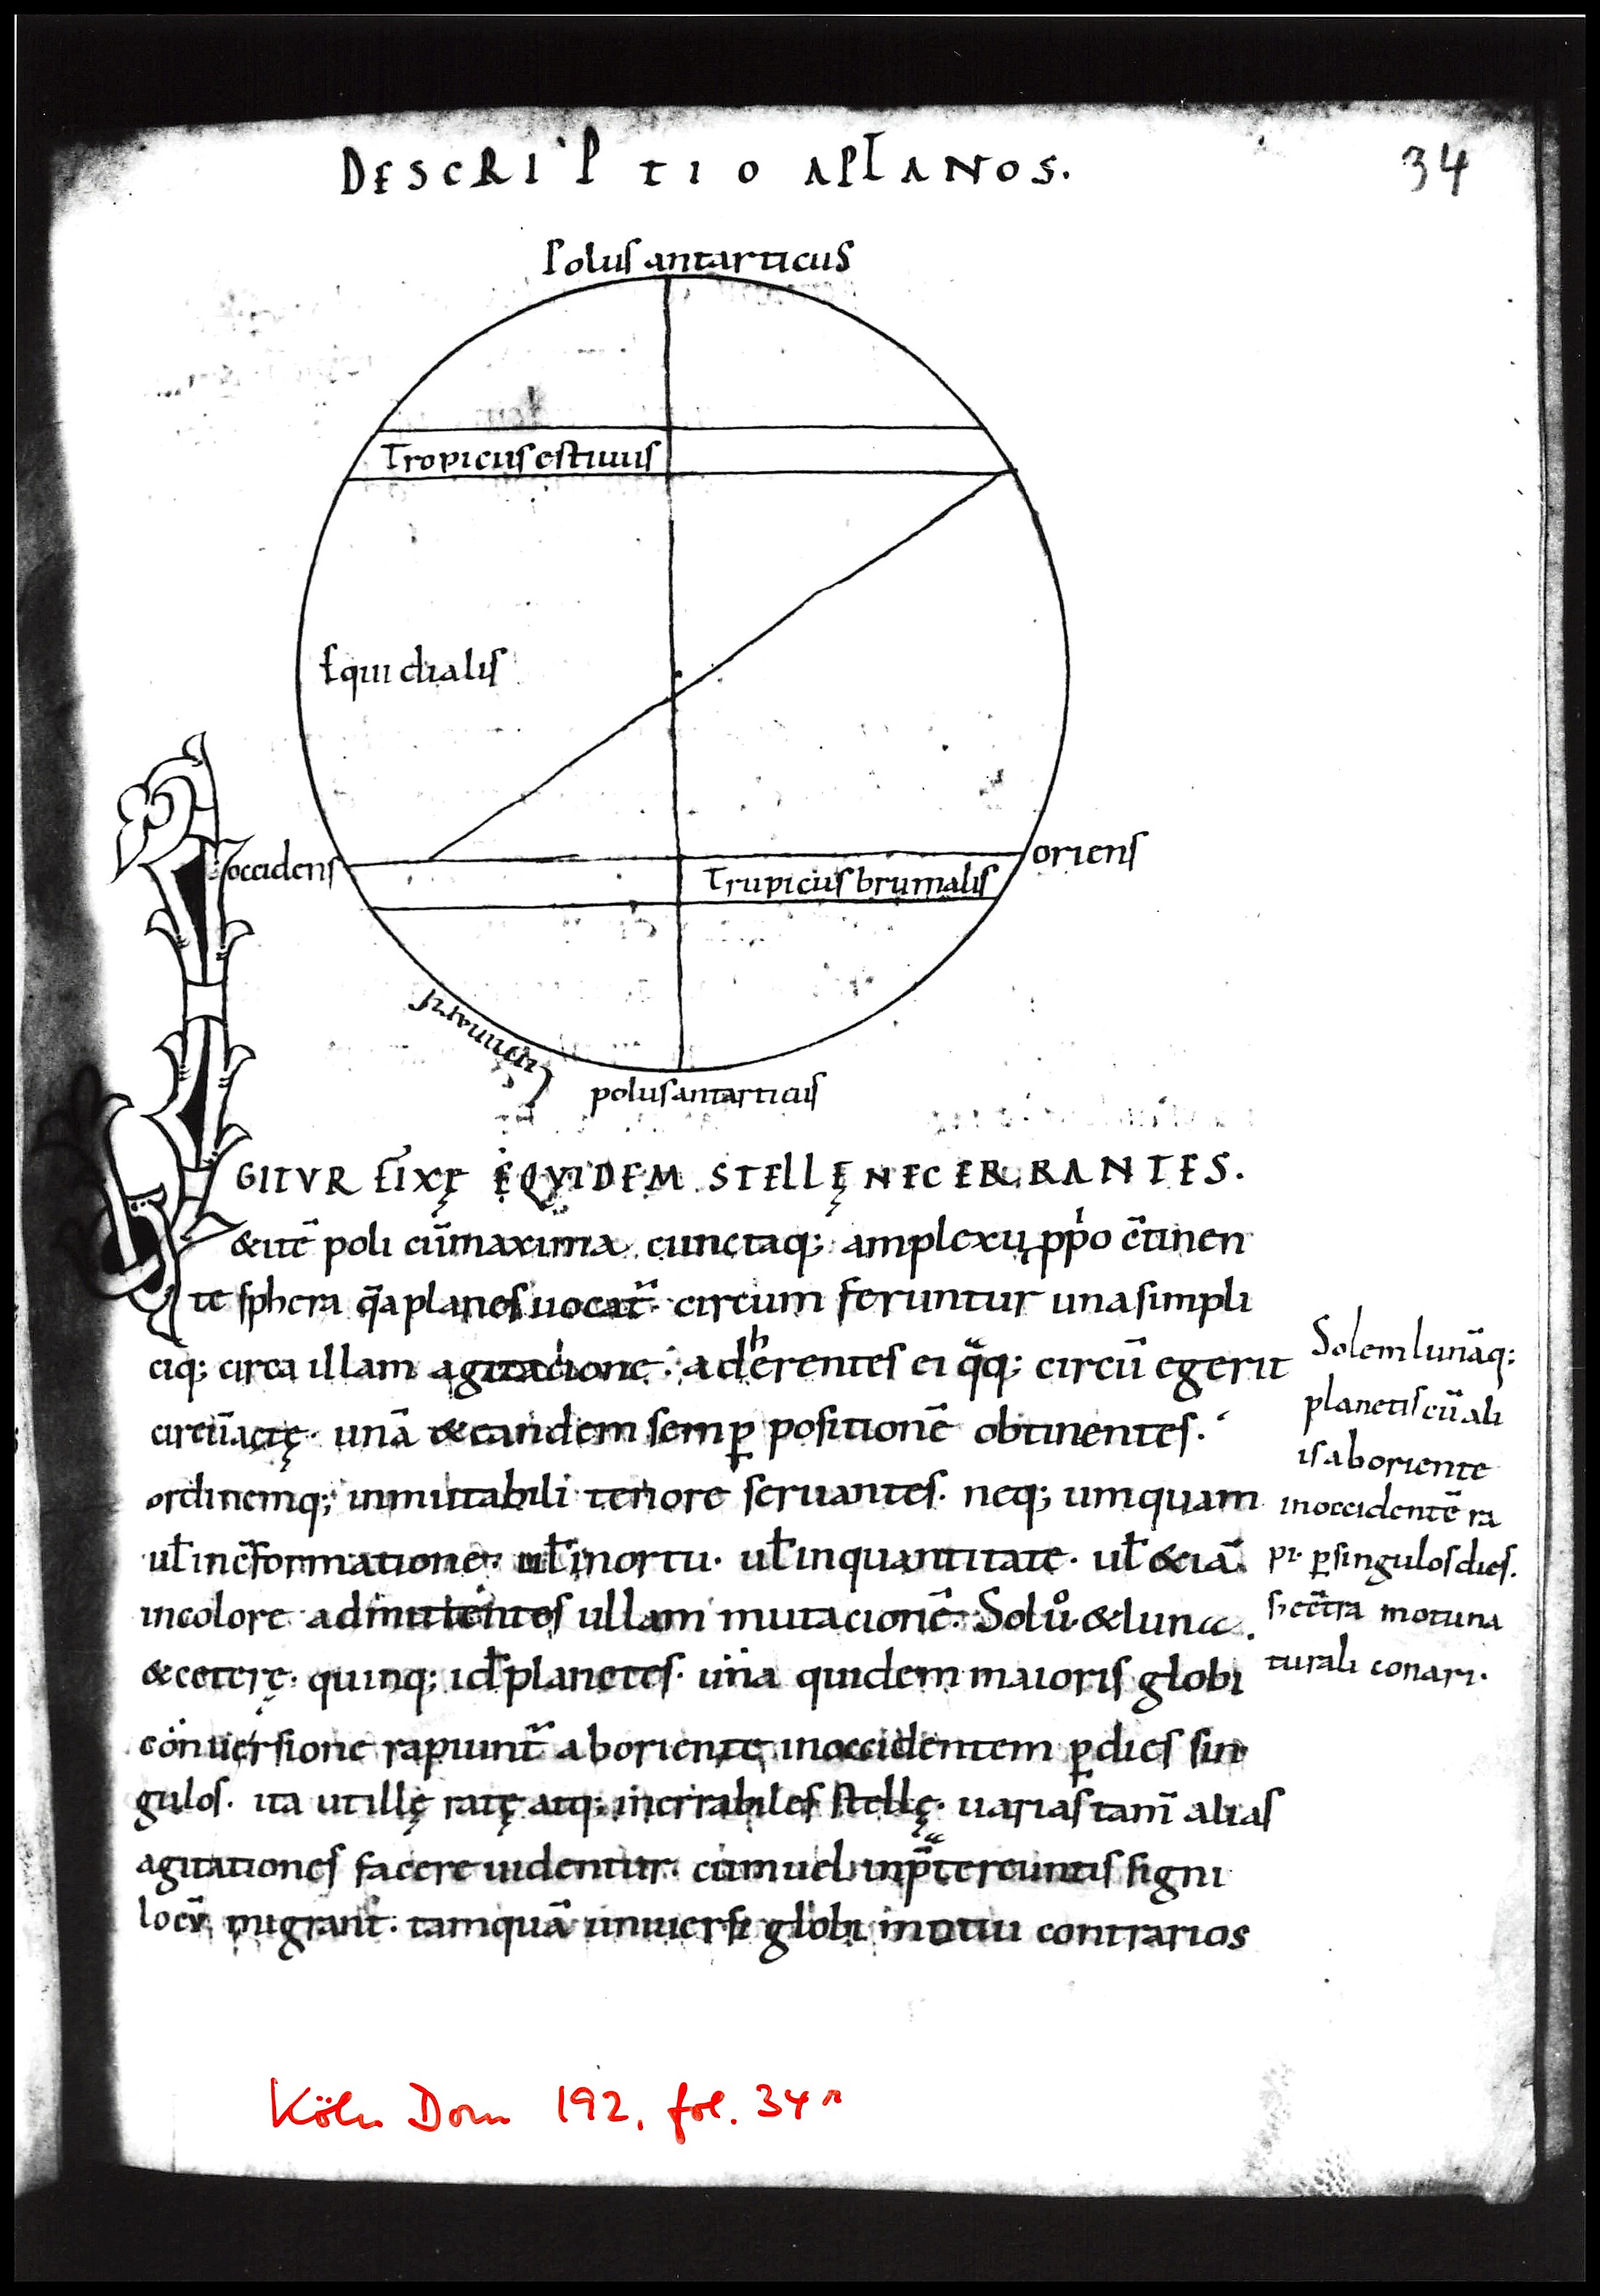 DESCRIPTIO APLANOS.
34
Polus antarticus
Tropicus estiuus
Equidialis
occidens
oriens
Trupicus brumalis
polus antarticus
GITVR FIXĘ EQVIDEM STELLĘ NEC ERRANTES.
&itē poli cū maxima cunctaq; amplexuq; ppo c̄tinen
te sphera q̄ aplanes uocat̄. circum feruntur una simpli
ciq; circa illam agitatione. adherentes ei q̄q; circū egerit
circūactę. unā & eandem semp positionē obtinentes.
ordinemq; inmutabili tenore seruantes. neq; umquam
ul̄ in c̄formatione. ul̄ in ortu. ul̄ in quantitate. ul̄ &iā
in colore admittentes ullam mutacionē. Solů. & luna.
& ceterę. quinq; id planetes. una quidem maioris globi
conuersione rapiunt̄ ab oriente in occidentem p dies sin
gulos. ita ut illę ratę atq; inerrabiles stellę. uarias tam̄ alias
agitationes facere uidentur. cum uel in p̄tereuntis signi
locū migrant. tamquā uniuersi globi motui contrarios
Solem lunāq;
planetis cū ali
is ab oriente
in occidentē ra
pi. p singulos dies.
s; c̄tra motu na
turali conari.
Köln Dom 192, fol. 34r